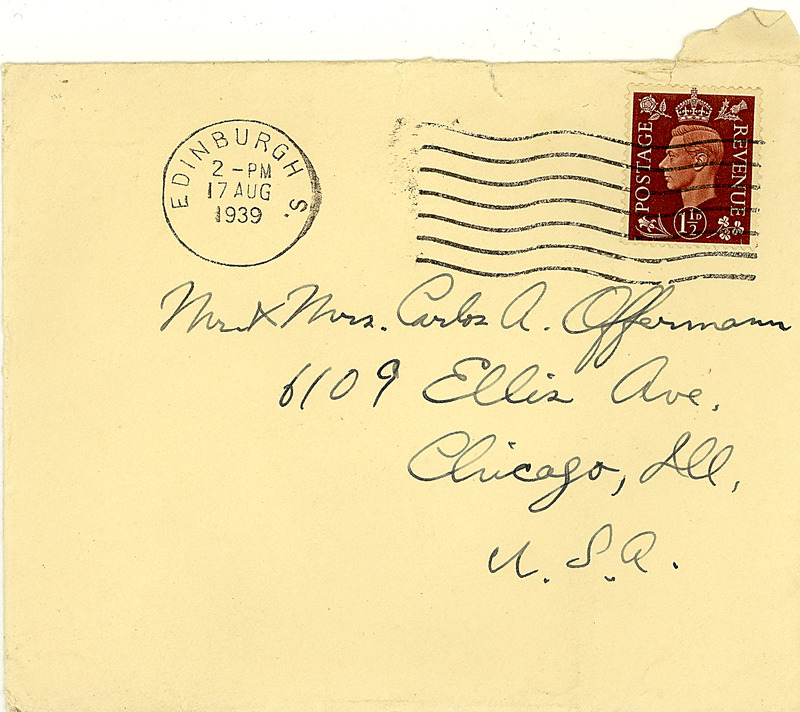 EDINBURGH S.
2 - PM
17 AUG
1939
POSTAGE
REVENUE
1½D
Mr. & Mrs. Carlos A. Offermann
6109 Ellis Ave.
Chicago, Ill.
U.S.A.